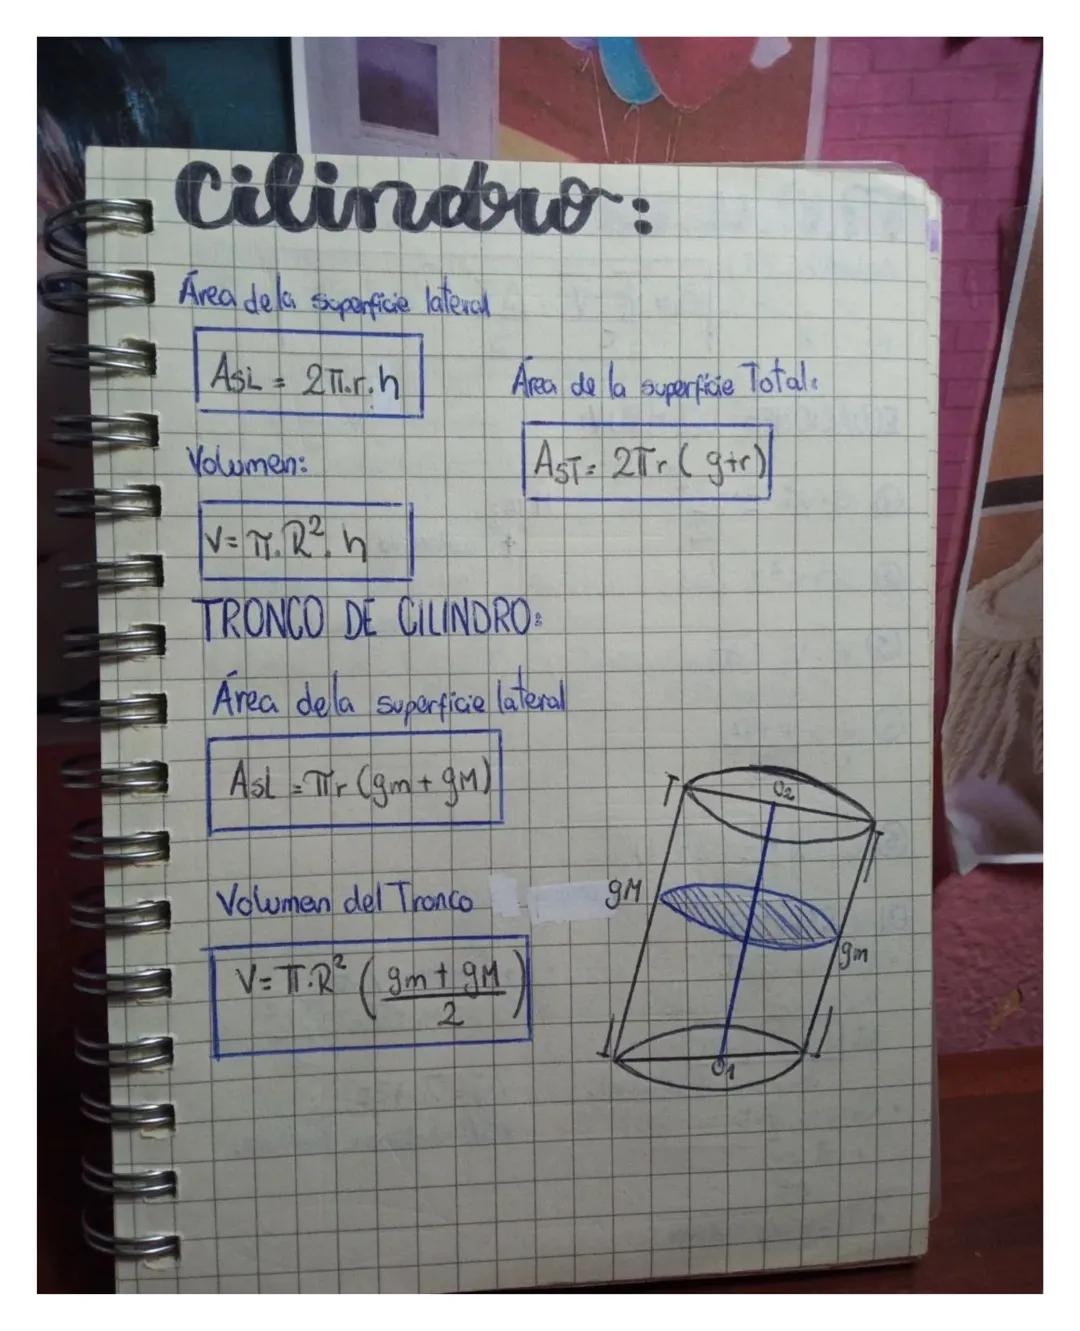 Cilindro:
Área de la superficie lateral
ASL = 2π.r.h
Área de la superficie Total:
AST = 2πr (g+r)
Volumen:
V= π.R².h
TRONCO DE CILINDRO:
Área de la superficie lateral
ASL = πr (gm + gM)
Volumen del Tronco
V= π.R² (gm + gM / 2)
O2
gM
gm
O1